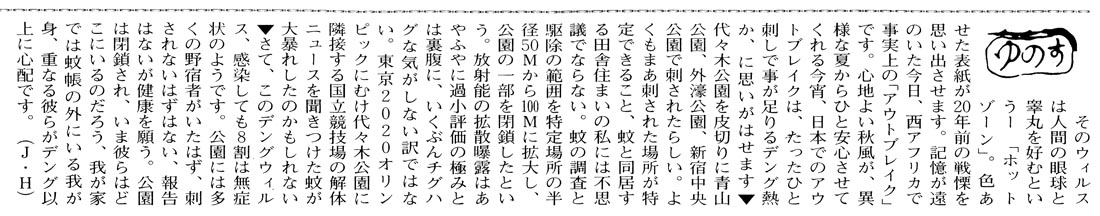 ゆのす
そのウィルス
は人間の眼球と
睾丸を好むとい
うー 「ホット
ゾーン」。色あ
せた表紙が20年前の戦慄を
思い出させます。記憶が遠
のいた今日、西アフリカで
事実上の「アウトブレイク」
です。心地よい秋風が、異
様な夏からひと安心させて
くれる今宵、日本でのアウ
トブレイクは、たったひと
刺しで事が足りるデング熱
か、に思いがはせます▼
代々木公園を皮切りに青山
公園、外濠公園、新宿中央
公園で刺されたらしい。よ
くもまあ刺された場所が特
定できること、蚊と同居す
る田舎住まいの私には不思
議でならない。蚊の調査と
駆除の範囲を特定場所の半
径50Mから100Mに拡大し、
公園の一部を閉鎖したとい
う。放射能の拡散曝露はあ
やふやに過小評価の極みと
は裏腹に、いくぶんチグハ
グな気がしない訳ではな
い。東京2020オリン
ピックにむけ代々木公園に
隣接する国立競技場の解体
ニュースを聞きつけた蚊が
大暴れしたのかもしれない
▼さて、このデングウィル
ス、感染しても8割は無症
状のようです。公園には多
くの野宿者がいたはず、刺
されないはずはない、報告
はないが健康を願う。公園
は閉鎖され、いま彼らはど
こにいるのだろう、我が家
では蚊帳の外にいる我が
身、重なる彼らがデング以
上に心配です。 （J・H）